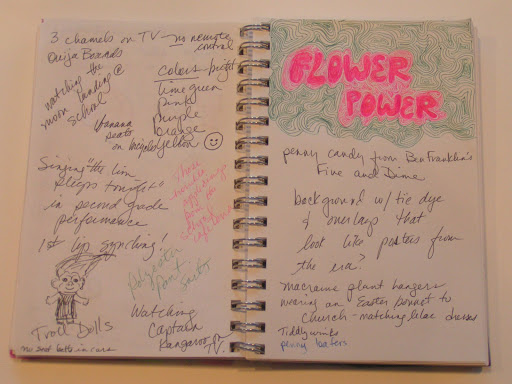 3 chanels on TV - no remote control
Ouija Boards
watching the
moon landing @
school
colors - bright
lime green
pink
purple
orange
yellow
banana
seats
on bicycles
Singing "the lion
sleeps tonight"
in second grade
performance
1st lip synching!
polyester
pant
suits
Troll Dolls
no seat belts in cars
Watching
Captain
Kangaroo
FLOWER
POWER
penny candy from Ben Franklin's
Five and Dime
background w/ tie dye
& overlays that
look like posters from
the era?
macrame plant hangers
wearing an Easter bonnet to
church - matching lilac dresses
Tiddlywinks
penny loafers